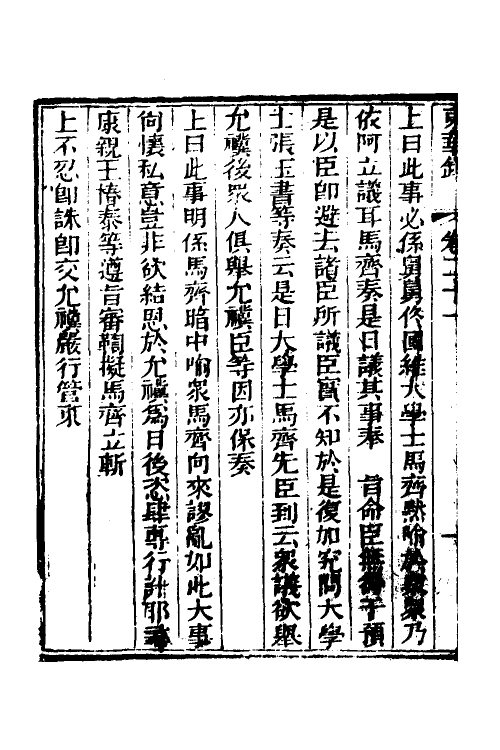 東華錄 卷二十一
上曰此事必係舅舅佟國維大學士馬齊默喻於衆衆乃
依阿立議耳馬齊奏是日議其事奉 旨命臣無得干預
是以臣即避去諸臣所議臣實不知於是復加究問大學
士張玉書等奏云是日大學士馬齊先臣到云衆議欲舉
允禩後衆人俱舉允禩臣等因亦保奏
上曰此事明係馬齊暗中喻衆馬齊向來謬亂如此大事
尙懷私意豈非欲結恩於允禩爲日後恣肆專行計耶
康親王椿泰等遵旨審鞫擬馬齊立斬
上不忍即誅即交允禩嚴行管束